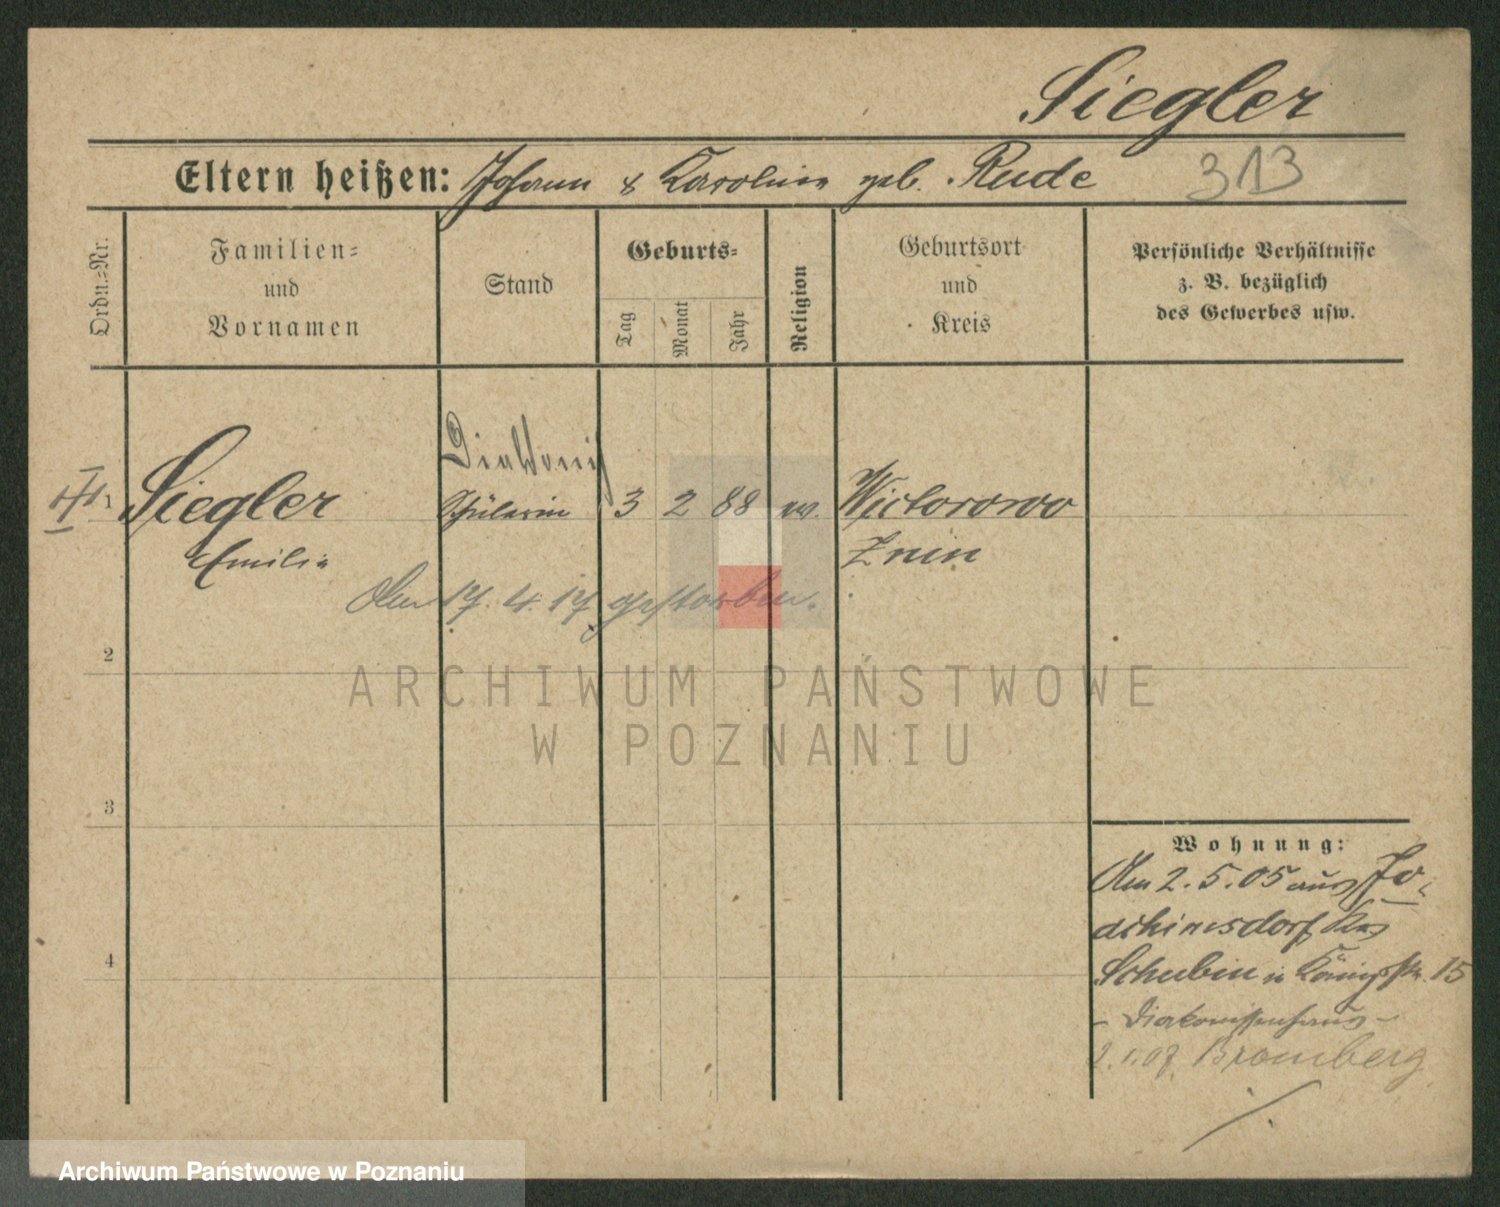 Siegler
Eltern heißen: Johann & Karoline geb. Rude 313
Ordn.=Nr.
Familien=
und
Vornamen
Stand
Geburts=
Tag
Monat
Jahr
Religion
Geburtsort
und
Kreis
Persönliche Verhältnisse
z. B. bezüglich
des Gewerbes usw.
Diakoniss
Siegler Schülerin 3 2 88 ev. Wictorowo
Emilie Znin
Am 17. 4. 17 gestorben.
2
3
4
Wohnung:
Am 2. 5. 05 aus Jo-
achimsdorf Krs
Schubin in Königstr. 15
- Diakonissenhaus -
2.1.07. Bromberg
ARCHIWUM PAŃSTWOWE
W POZNANIU
Archiwum Państwowe w Poznaniu